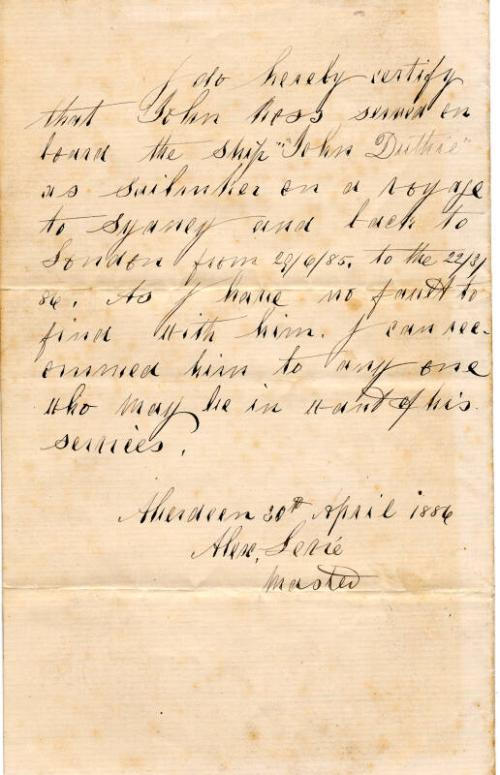 I do hereby certify
that John Ross served on
board the ship "John Duthie"
as sailmaker on a voyage
to Sydney and back to
London from 29/6/85. to the 22/3/
86. As I have no fault to
find with him. I can rec-
ommed him to any one
who may be in want of his
services.
Aberdeen 20th April 1886
Alex. Levie
Master